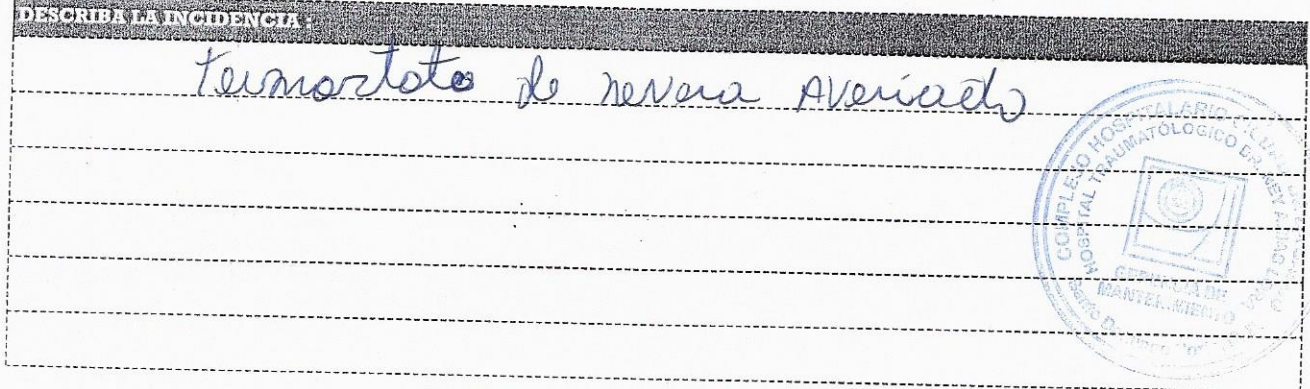 DESCRIBA LA INCIDENCIA :
Termostato de nevera Averiado
COMPLEJO HOSPITALARIO
HOSPITAL TRAUMATOLOGICO DR. NEY ARIAS LORA
GERENCIA DE
MANTENIMIENTO